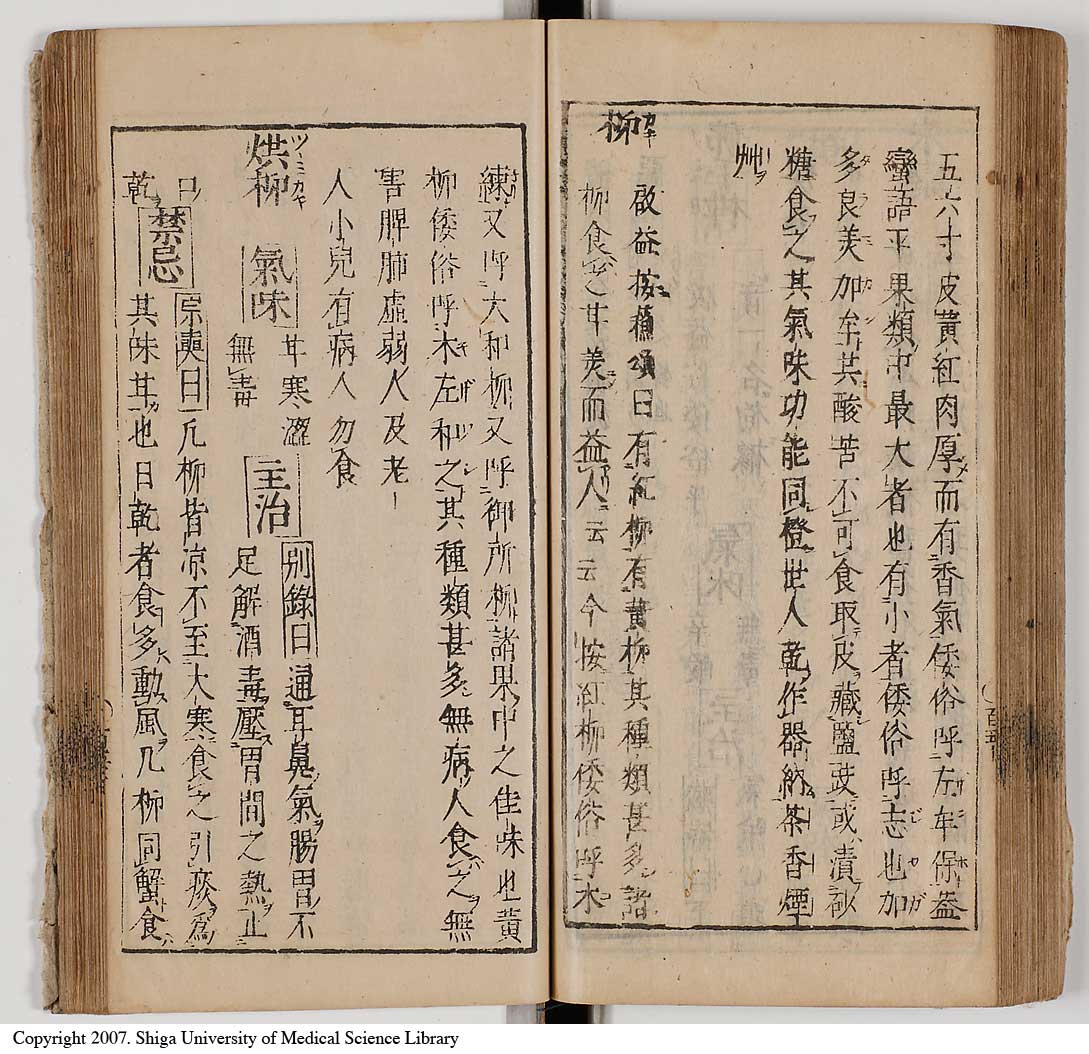 五六寸皮黃紅肉厚而有香氣倭俗呼左牟保盎
蠻語平果類中最大者也有小者倭俗呼志也加
多良美加牟其酸苦不可食取皮藏鹽豉或漬砂
糖食之其氣味功能同橙世人乾作器納茶香煙
艸
柿
啟益按蘓頌曰有紅柿有黃柿其種類甚多諸
柿食之甘美而益人云云今按紅柿倭俗呼木
練又呼大和柿又呼御所柿諸果中之佳味也黃
柿倭俗呼木左和之其種類甚多無病人食之無
害脾肺虛弱人及老
人小兒有病人勿食
烘柿 氣味 甘寒澀
無毒 主治 別錄曰通耳鼻氣腸胃不
足解酒毒壓胃間之熱止
口
乾 禁忌 宗奭曰凡柿皆凉不至大寒食之引痰爲
其味甘也日乾者食多動風凡柿同蟹食